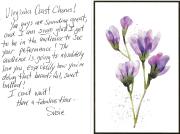 Virginia Coast Chorus!
You guys are sounding great,
and I am sooo glad I get
to be in the audience to see
your performance! The
audience is going to absolutely
love you, especially how you're
doing that beautiful, sweet
ballad!
I can't wait!
Have a fabulous time.
Susie